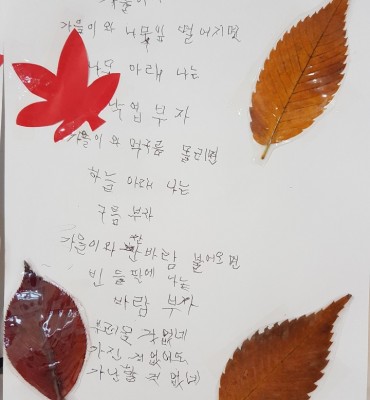 가을이
가을이 와 나뭇잎 떨어지면
나무 아래 나는
낙엽 부자
가을이 와 먹구름 몰리면
하늘 아래 나는
구름 부자
가을이 와 찬바람 불어오면
빈 들판에 나는
바람 부자
부러울 것 없네
가진 게 없어도
가난할 것 없네